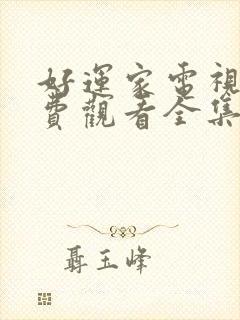 好運家電視
費觀看全集
聶玉峰